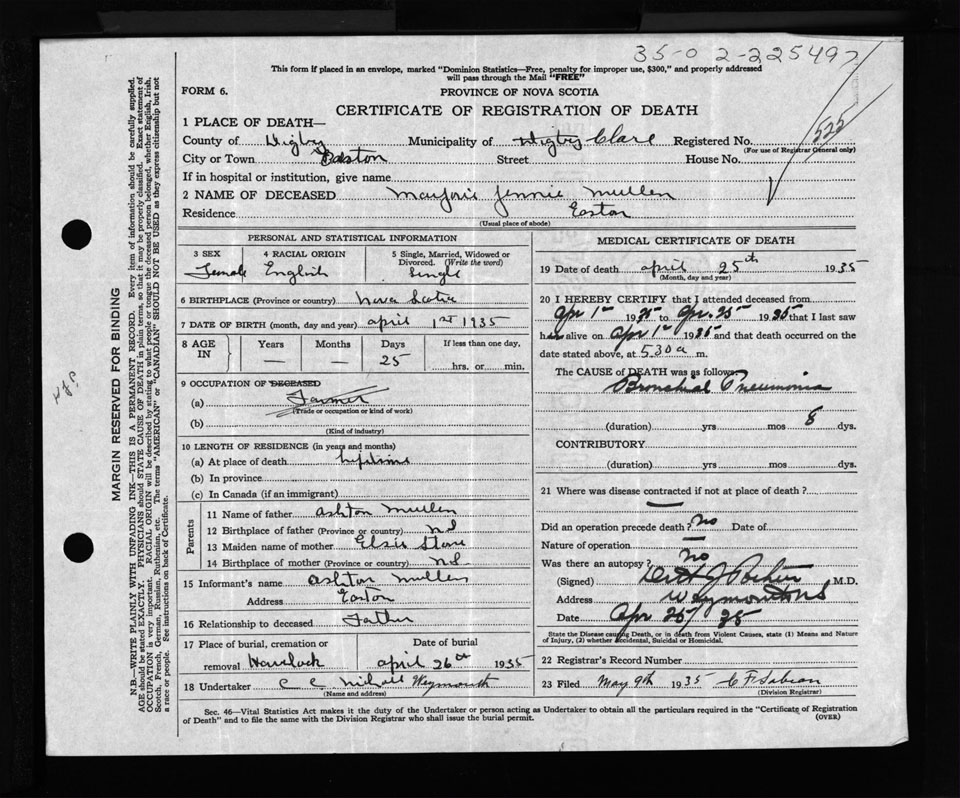 35-02-225497
This form if placed in an envelope, marked "Dominion Statistics—Free, penalty for improper use, $300," and properly addressed
will pass through the Mail "FREE"
FORM 6.
PROVINCE OF NOVA SCOTIA
CERTIFICATE OF REGISTRATION OF DEATH
525
1 PLACE OF DEATH—
County of Digby Municipality of Digby Clare Registered No.
(For use of Registrar General only)
City or Town Easton Street House No.
If in hospital or institution, give name
2 NAME OF DECEASED Marjorie Jennie Mullen
Residence Easton
(Usual place of abode)
PERSONAL AND STATISTICAL INFORMATION
3 SEX 4 RACIAL ORIGIN 5 Single, Married, Widowed or
Divorced. (Write the word)
Female English Single
6 BIRTHPLACE (Province or country) Nova Scotia
7 DATE OF BIRTH (month, day and year) April 1st 1935
8 AGE IN Years Months Days If less than one day,
— — 25 hrs. or min.
9 OCCUPATION OF DECEASED
(a) Farmer
(Trade or occupation or kind of work)
(b)
(Kind of industry)
10 LENGTH OF RESIDENCE (in years and months)
(a) At place of death lifetime
(b) In province
(c) In Canada (if an immigrant)
Parents
11 Name of father Ashton Mullen
12 Birthplace of father (Province or country) N.S
13 Maiden name of mother Elsie Stone
14 Birthplace of mother (Province or country) N.S
15 Informant's name Ashton Mullen
Address Easton
16 Relationship to deceased Father
17 Place of burial, cremation or Date of burial
removal Havelock April 26th 1935
18 Undertaker C C Weymouth
(Name and address)
MEDICAL CERTIFICATE OF DEATH
19 Date of death April 25th 1935
(Month, day and year)
20 I HEREBY CERTIFY that I attended deceased from
Apr 1st 1935 to Apr. 25 1935 that I last saw
her alive on Apr 1st 1935 and that death occurred on the
date stated above, at 5.30 a m.
The CAUSE of DEATH was as follows:
Bronchial Pneumonia
(duration) yrs mos 8 dys.
CONTRIBUTORY
(duration) yrs. mos. dys.
21 Where was disease contracted if not at place of death?
—
Did an operation precede death? No Date of
Nature of operation —
Was there an autopsy? No
(Signed) M.D.
Address Weymouth N.S
Date Apr 25/35
State the Disease causing Death, or in death from Violent Causes, state (1) Means and Nature
of Injury, (2) whether Accidental, Suicidal or Homicidal.
22 Registrar's Record Number
23 Filed May 9th 1935
(Division Registrar)
Sec. 46—Vital Statistics Act makes it the duty of the Undertaker or person acting as Undertaker to obtain all the particulars required in the "Certificate of Registration
of Death" and to file the same with the Division Registrar who shall issue the burial permit.
(OVER)
MARGIN RESERVED FOR BINDING
N.B.—WRITE PLAINLY WITH UNFADING INK—THIS IS A PERMANENT RECORD. Every item of information should be carefully supplied.
AGE should be stated EXACTLY. PHYSICIANS should STATE CAUSE OF DEATH in plain terms, so that it may be properly classified. Exact statement of
OCCUPATION is very important. RACIAL ORIGIN will be described by stating to what people or tongue the deceased person belonged, whether English, Irish,
Scotch, French, German, Russian, Ruthenian, etc. The terms "AMERICAN" or "CANADIAN" SHOULD NOT BE USED as they express citizenship but not
a race or people. See instructions on back of Certificate.